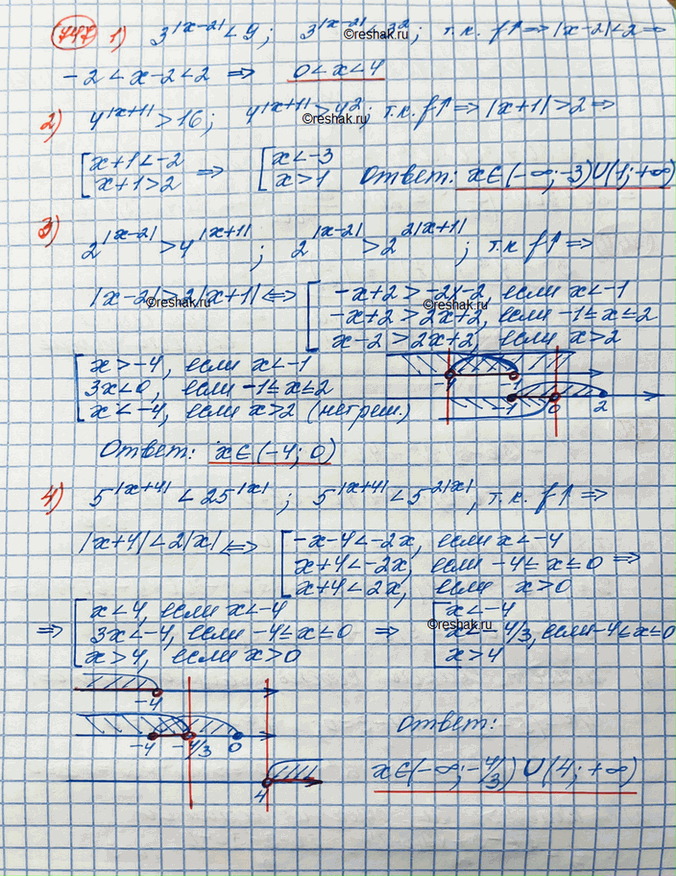 747 1) 3^|x-2| < 9; 3^|x-2| < 3^2; т.к. f↑ ⇒ |x-2| < 2 ⇒
-2 < x-2 < 2 ⇒ 0 < x < 4
2) 4^|x+1| > 16; 4^|x+1| > 4^2; т.к. f↑ ⇒ |x+1| > 2 ⇒
[ x+1 < -2 ⇒ [ x < -3
x+1 > 2 x > 1 Ответ: x∈(-∞; -3)∪(1; +∞)
3) 2^|x-2| > 4^|x+1|; 2^|x-2| > 2^2|x+1|; т.к f↑ ⇒
|x-2| > 2|x+1| ⇔ [ -x+2 > -2x-2, если x < -1
-x+2 > 2x+2, если -1 ≤ x ≤ 2
x-2 > 2x+2, если x > 2
[ x > -4, если x < -1
3x < 0, если -1 ≤ x ≤ 2
x < -4, если x > 2 (нет реш.)
-4 -1
-1 0 2
Ответ: x∈(-4; 0)
4) 5^|x+4| < 25^|x|; 5^|x+4| < 5^2|x|, т.к. f↑ ⇒
|x+4| < 2|x| ⇔ [ -x-4 < -2x, если x < -4
x+4 < -2x, если -4 ≤ x ≤ 0 ⇒
x+4 < 2x, если x > 0
⇒ [ x < 4, если x < -4 [ x < -4
3x < -4, если -4 ≤ x ≤ 0 ⇒ x < -4/3, если -4 ≤ x ≤ 0
x > 4, если x > 0 x > 4
-4
-4 -4/3 0
Ответ:
4
x∈(-∞; -4/3) ∪ (4; +∞)
©reshak.ru
©reshak.ru
©reshak.ru
©reshak.ru
©reshak.ru